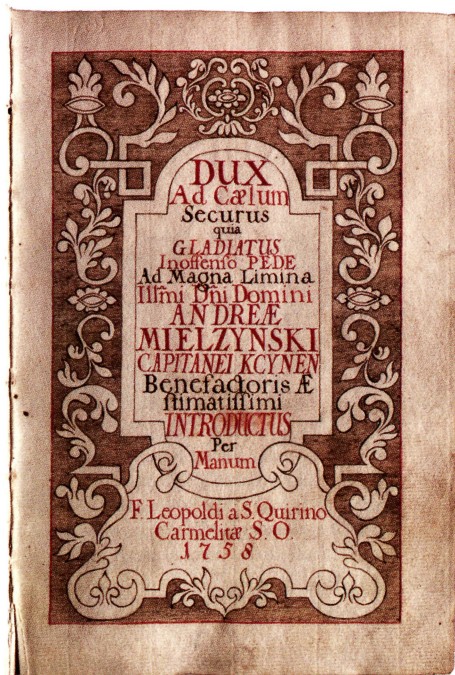 DUX
Ad Cælum
Securus
quia
GLADIATUS
Inoffenſo PEDE
Ad Magna Limina
Illſmi Dñi Domini
ANDREÆ
MIELZYNSKI
CAPITANEI KCYNEN
Benefactoris Æ
ſtimatiſſimi
INTRODUCTUS
Per
Manum
F. Leopoldi a S. Quirino
Carmelitæ S. O.
1758